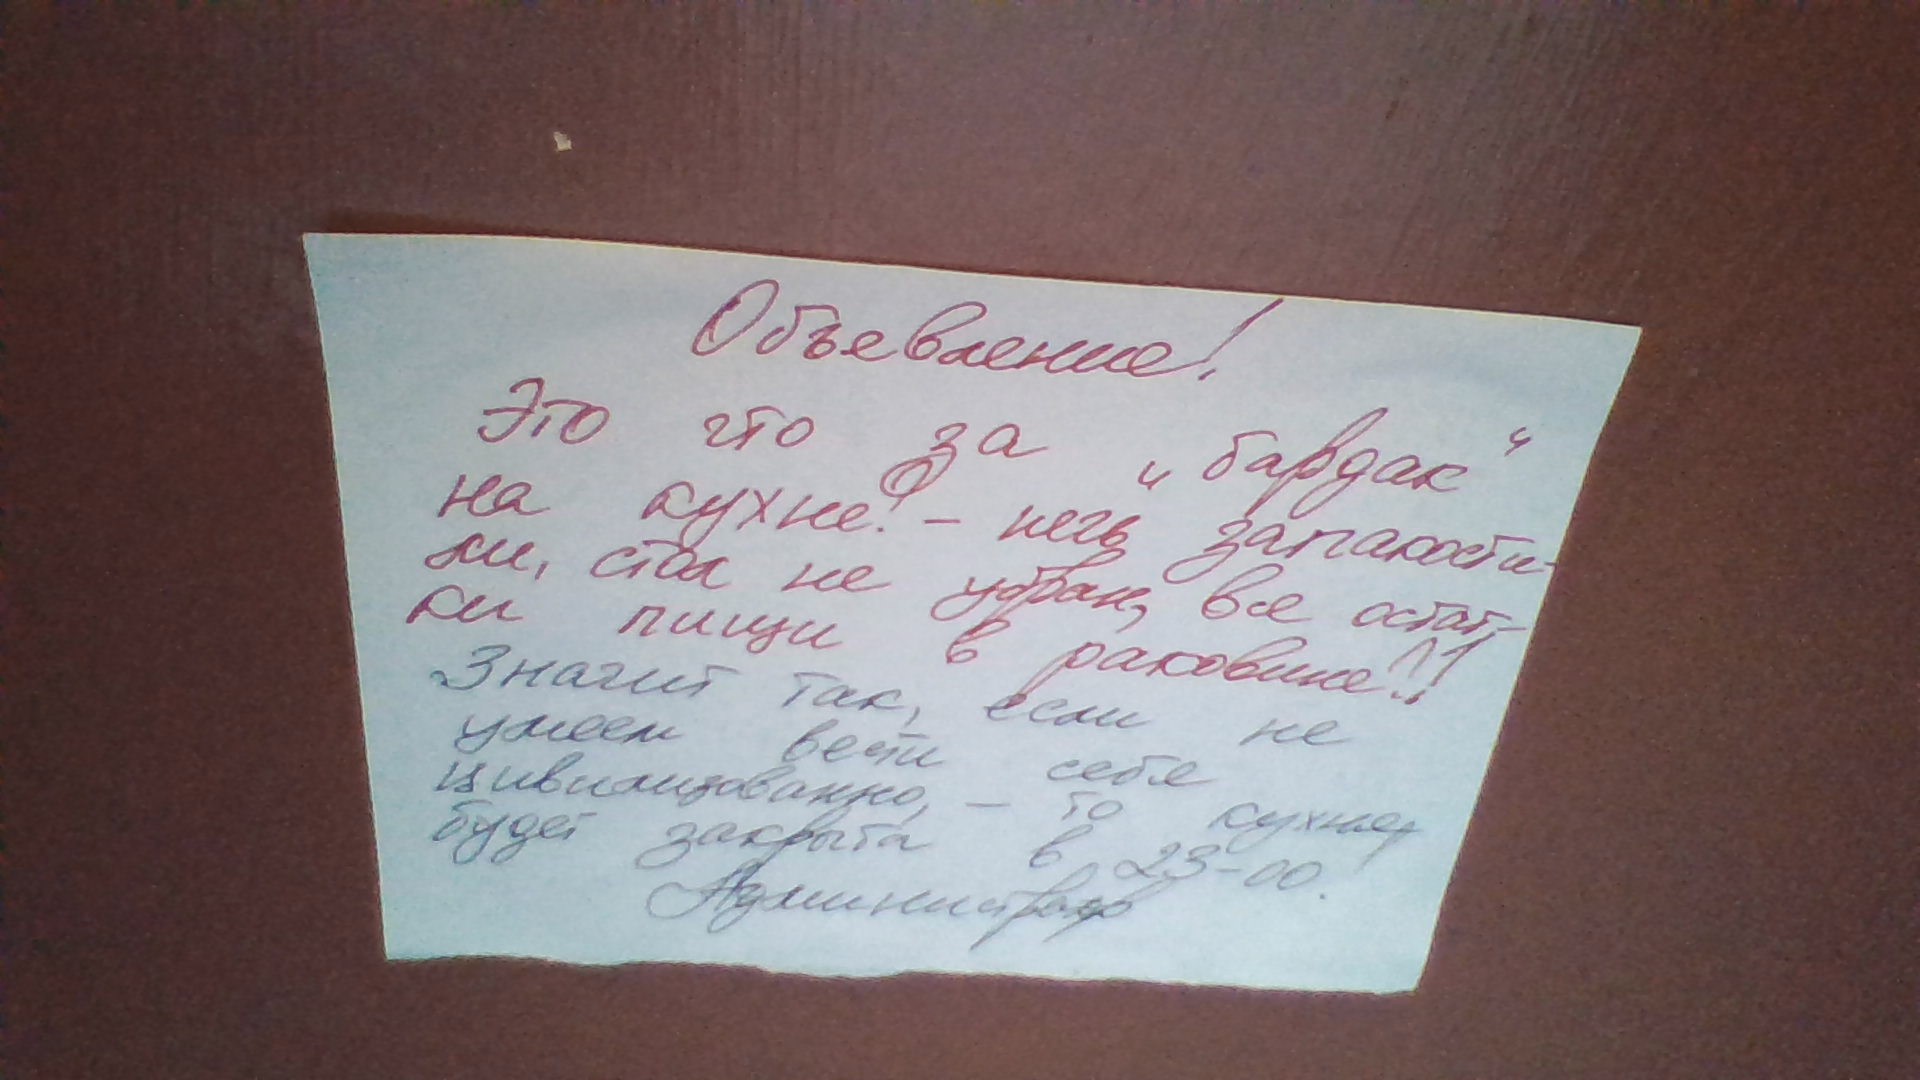 Объевление!
Это что за „бардак“
на кухне? – печь запакости-
ли, стол не убран, все остат-
ки пищи в раковине!!
Значит так, если не
умеем вести себя
цивилизованно, – то кухня
будет закрыта в 23-00.
Администратор